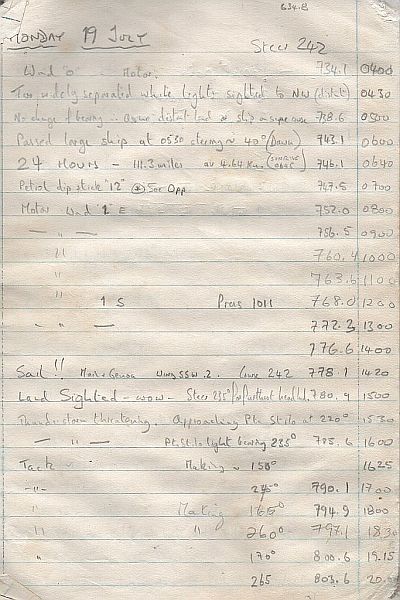 634.8
MONDAY 19 JULY
Steer 242
Wind "0" - Motor. 734.1 0400
Two widely separated white lights sighted to NW (distant) 0430
No change of bearing in Assume distant land or ship on same course 738.6 0500
Passed large ship at 0530 steering ~ 40° (Dawn) 743.1 0600
24 HOURS - 111.3 miles av 4.64 Kn. (SUNRISE 0645) 746.1 0640
Petrol dip stick "12" See Opp 747.5 0700
Motor Wind "1" E 752.0 0800
— " — 756.5 0900
" 760.4 1000
" 763.6 1100
" 1 S Pres 1011 768.0 1200
— " — 772.3 1300
776.6 1400
Sail!! Main & Genoa Wind SSW.2. Course 242 778.1 1420
Land Sighted - wow - Steer 235° for furthest headland. 780.9 1500
Thunderstorm threatening. Approaching Pta Stilo at 220° 1530
— " — Pt. Stilo light bearing 235° 785.6 1600
Tack Making ~ 150° 1625
-"- 245° 790.1 1700
" Making 165° 794.9 1800
" " 260° 797.1 1830
" 170° 800.6 19.15
265 803.6 20.